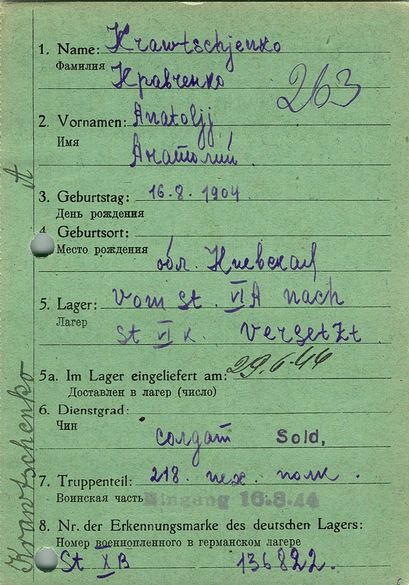 1. Name: Krawtschjenko
Фамилия Кравченко
263
2. Vornamen: Anatolij
Имя Анатолий
3. Geburtstag: 16.8.1904
День рождения
4. Geburtsort:
Место рождения
обл. Киевская
5. Lager: Vom St. VI A nach
Лагер St VI K. versetzt
5a. Im Lager eingeliefert am: 29.6.44
Доставлен в лагер (число)
6. Dienstgrad:
Чин
солдат Sold,
7. Truppenteil: 218. пех. полк.
Воинская часть Eingang 16.8.44
8. Nr. der Erkennungsmarke des deutschen Lagers:
Номер военнопленного в германском лагере
St X B 136822.
Krawtschenko A